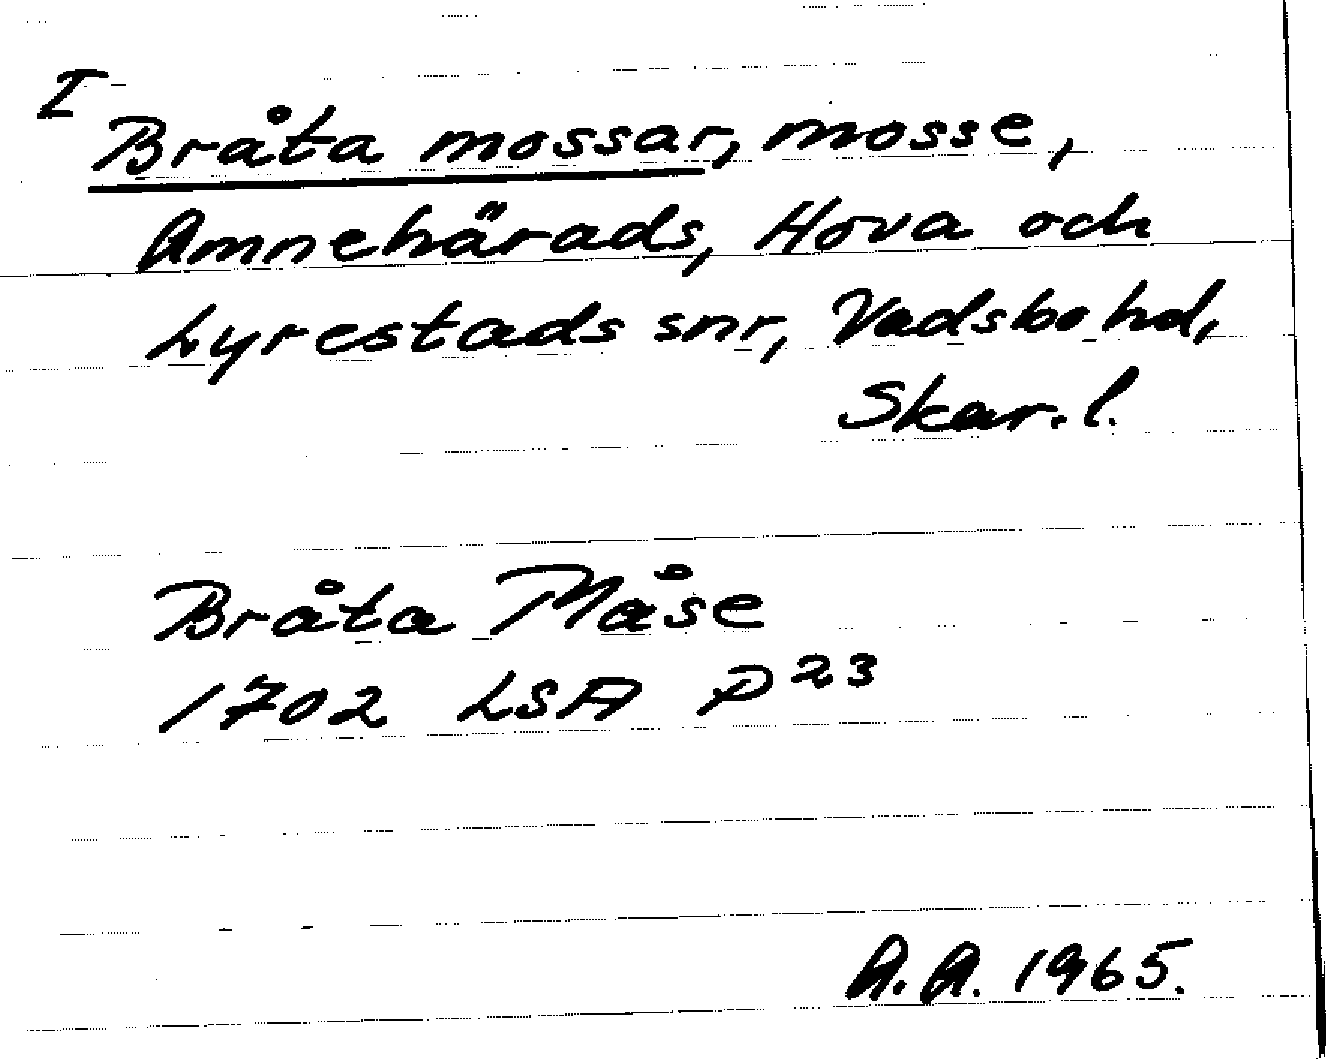 I
Bråta mossar, mosse,
Amnehärads, Hova och
Lyrestads snr, Vadsbo hd,
Skar. l.
Bråta Måse
1702 LSA P 23
A.A. 1965.